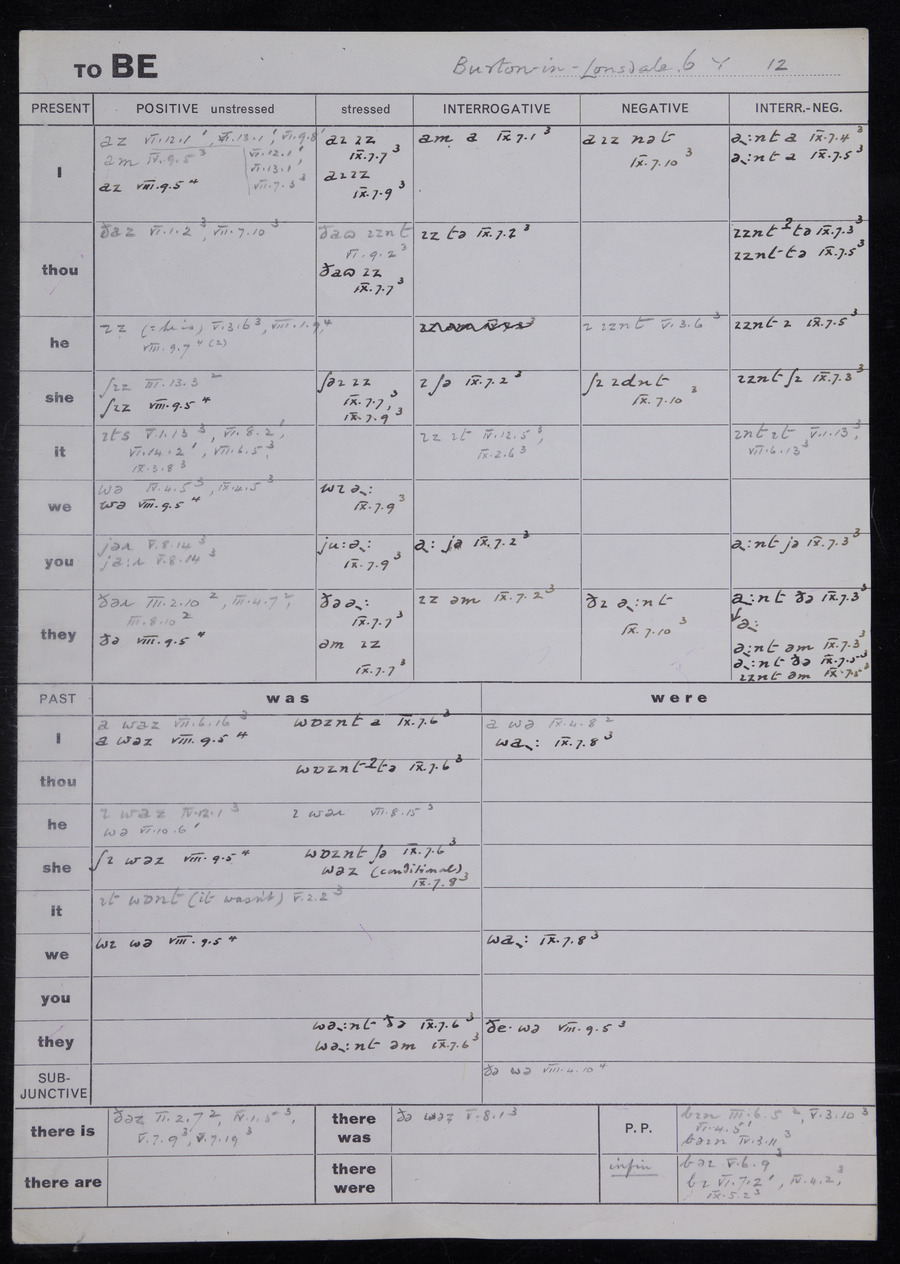 TO BE Burton-in-Lonsdale. 6 Y 12
PRESENT POSITIVE unstressed stressed INTERROGATIVE NEGATIVE INTERR.-NEG.
I
az VI.12.1¹, VI.13.1¹, VI.9.8¹
am IV.9.5³
VI.12.1¹
VI.13.1¹
VII.7.3³
az VIII.9.5⁴
aɪ ɪz
IX.7.7³
aɪɪz
IX.7.9³
am a IX.7.1³
aɪz nət
IX.7.10³
a:nt a IX.7.4³
a:nt a IX.7.5³
thou
ðaz VI.1.2³, VII.7.10³
ðaʊ ɪznt
VI.9.2³
ðaʊ ɪz
IX.7.7³
ɪz tə IX.7.2³
ɪznt ʔtə IX.7.3³
ɪznt tə IX.7.5³
he
ɪz (= he is) V.3.6³, VIII.1.9⁴
VIII.9.7⁴ (2)
ɪ ɪznt V.3.6³
ɪznt ɪ IX.7.5³
she
ʃɪz III.13.3²
ʃɪz VIII.9.5⁴
ʃəɪ ɪz
IX.7.7³,
IX.7.9³
ɪ ʃə IX.7.2³
ʃɪ ɪdnt
IX.7.10³
ɪznt ʃɪ IX.7.3³
it
ɪts V.1.13³, VI.8.2¹,
VI.14.2¹, VII.6.5³,
IX.3.8³
ɪz ɪt IV.12.5³,
IX.2.6³
ɪnt ɪt V.1.13³,
VII.6.13³
we
wə IV.4.5³, IX.4.5³
wə VIII.9.5⁴
wɪ a:
IX.7.9³
you
jər V.8.14³
ja:r V.8.14³
ju: a:
IX.7.9³
a: jə IX.7.2³
a:nt jə IX.7.3³
they
ðər III.2.10², III.4.7²,
III.8.10²
ðə VIII.9.5⁴
ðə a:
IX.7.7³
əm ɪz
IX.7.7³
ɪz əm IX.7.2³
ðɪ a:nt
IX.7.10³
a:nt ðə IX.7.3³
a:
a:nt əm IX.7.3³
a:nt ðə IX.7.5³
ɪznt əm IX.7.5³
PAST was were
I
a waz VII.6.16³ wɒznt a IX.7.6³ a wə IX.4.8²
a wəz VIII.9.5⁴ wa: IX.7.8³
thou
wɒznt ʔtə IX.7.6³
he
ɪ waz IV.12.1³ ɪ war VII.8.15³
wə VI.10.6¹
she
ʃɪ wəz VIII.9.5⁴ wɒznt ʃə IX.7.6³
wəz (conditional)
IX.7.8³
it
ɪt wɒnt (it wasn't) V.2.2³
we
wɪ wə VIII.9.5⁴ wa: IX.7.8³
you
they
wa:nt ðə IX.7.6³ ðe· wə VIII.9.5³
wa:nt əm IX.7.6³
SUB-
JUNCTIVE
ðə wə VIII.4.10⁴
there is
ðəz II.2.7², IV.1.5³,
V.7.9³, V.7.19³
there
was
ðə wəz V.8.1³
P.P.
bɪn III.6.5², V.3.10³
VI.4.5¹
bəɪn IV.3.11³
there are
there
were
infin
bəɪ V.6.9³
bɪ VI.7.2¹, IV.4.2³,
IX.5.2³